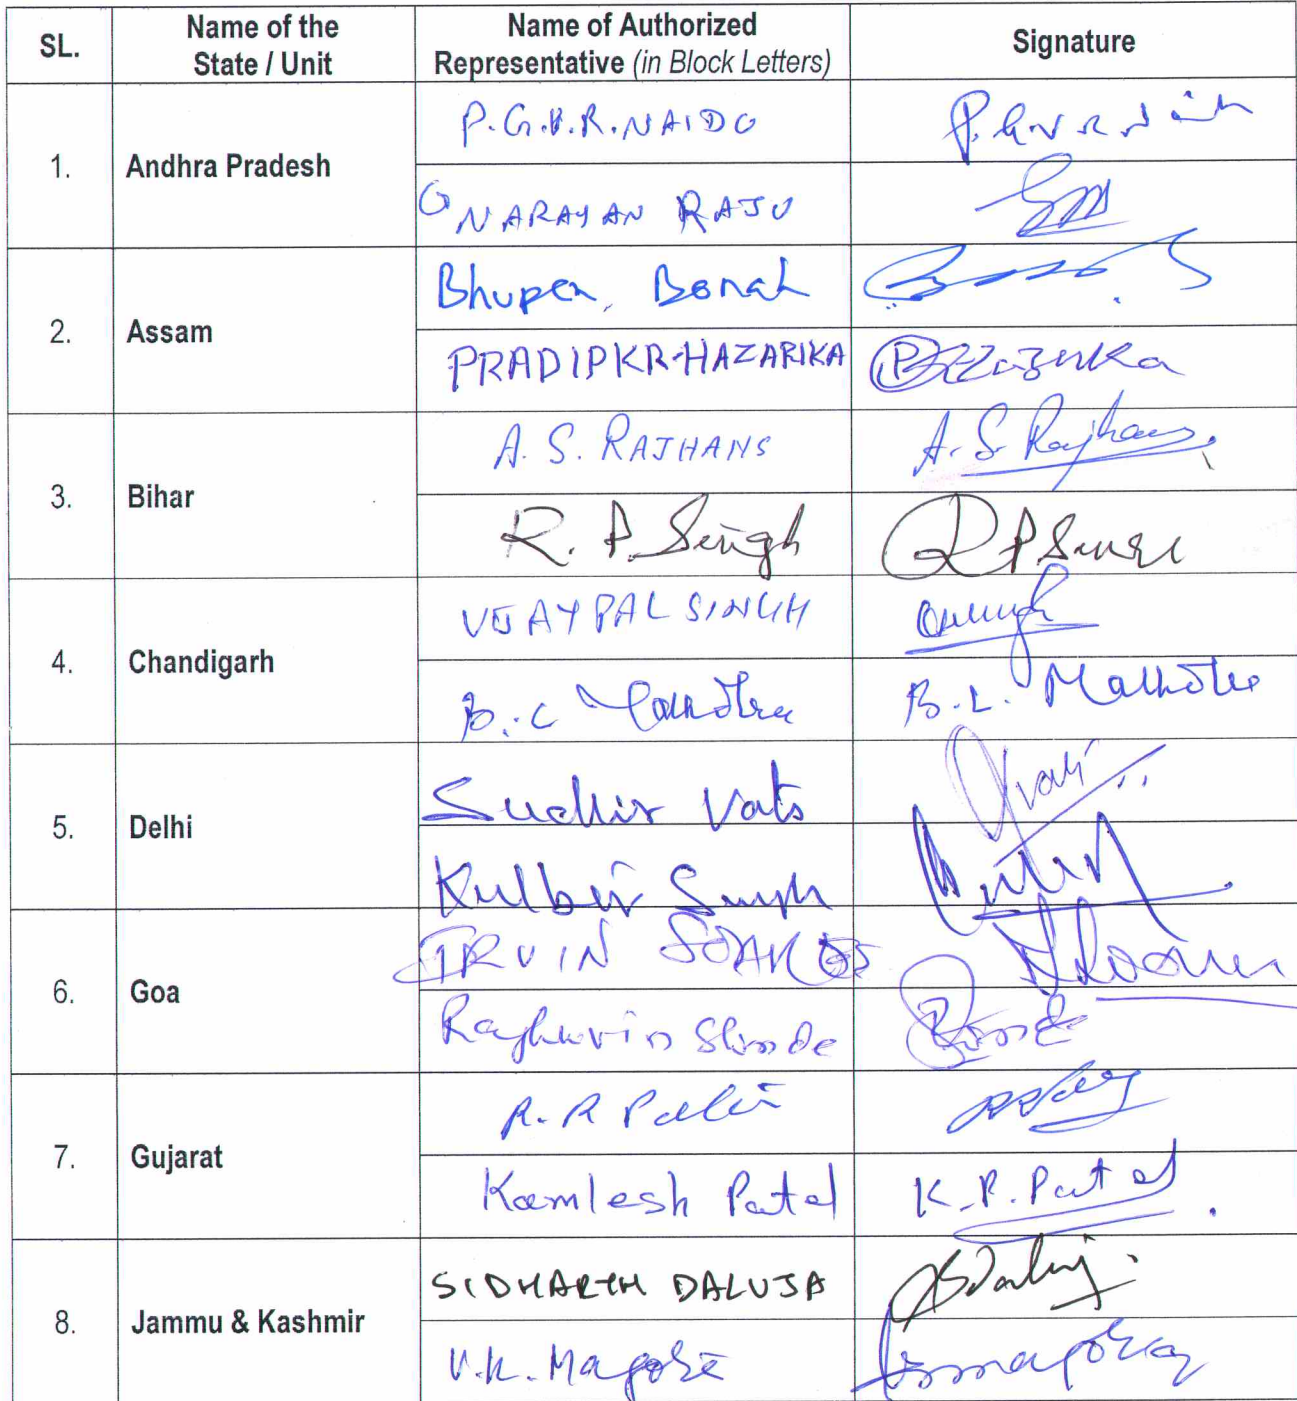 SL. Name of the State / Unit Name of Authorized Representative (in Block Letters) Signature
1. Andhra Pradesh
P.G.V.R. NAIDU
G NARAYAN RAJU
2. Assam
Bhupen Borah
PRADIP KR. HAZARIKA
3. Bihar
A. S. RAJHANS A. S. Rajhans
R. P. Singh
4. Chandigarh
VIJAY PAL SINGH
Malhotra
5. Delhi
Sudhir Vats
Kulbir Singh
6. Goa
IRVIN SOARES
7. Gujarat
R. R
Kamlesh Patel K. P. Patel
8. Jammu & Kashmir
SIDHARTH DALUJA
V.K.